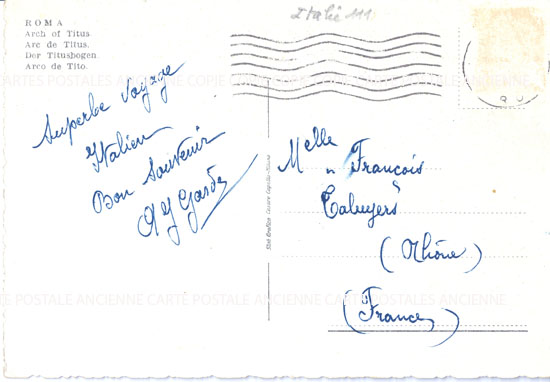 ROMA
Arch of Titus.
Arc de Titus.
Der Titusbogen.
Arco de Tito.
Italie 111
CARTES POSTALES ANCIENNE COPIE CARTES POSTALES ANCIENNE
Superbe Voyage
Italien
Bon Souvenir
Melle François
Taluyers
(Rhône)
(France)
CARTE POSTALE ANCIENNE CARTE POSTALE ANCIENNE CARTES POSTALES ANCIENNE